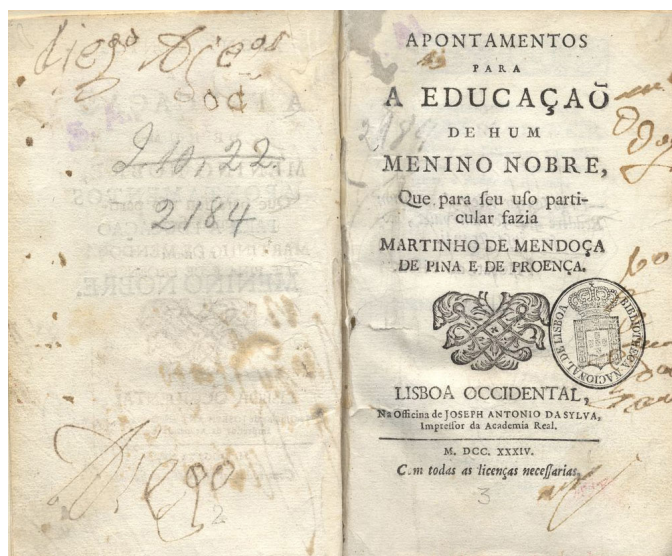 diego
210, 22
2184
Diego
2
APONTAMENTOS
PARA
A EDUCAÇAÕ
DE HUM
MENINO NOBRE,
Que para ſeu uſo parti-
cular fazia
MARTINHO DE MENDOÇA
DE PINA E DE PROENÇA.
BIBLIOTHECA NACIONAL DE LISBOA
LISBOA OCCIDENTAL,
Na Officina de JOSEPH ANTONIO DA SYLVA,
Impreſſor da Academia Real.
M. DCC. XXXIV.
Com todas as licenças neceſſarias.
3